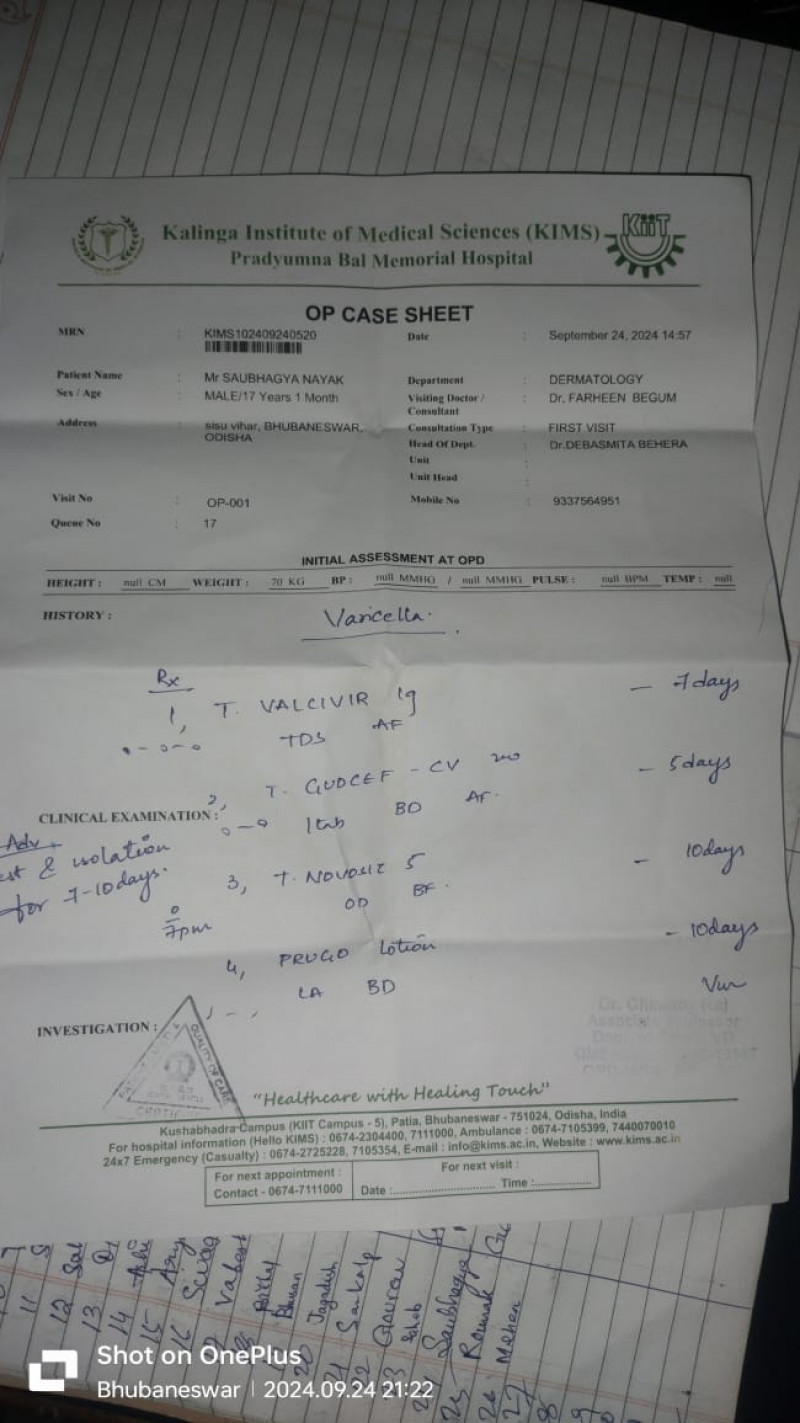 Kalinga Institute of Medical Sciences (KIMS)
KiiT
Pradyumna Bal Memorial Hospital
OP CASE SHEET
MRN : KIMS102409240520 Date : September 24, 2024 14:57
Patient Name : Mr SAUBHAGYA NAYAK Department : DERMATOLOGY
Sex / Age : MALE/17 Years 1 Month Visiting Doctor / Consultant : Dr. FARHEEN BEGUM
Address : sisu vihar, BHUBANESWAR, Consultation Type : FIRST VISIT
ODISHA Head Of Dept. : Dr.DEBASMITA BEHERA
Unit :
Unit Head :
Visit No : OP-001 Mobile No : 9337564951
Queue No : 17
INITIAL ASSESSMENT AT OPD
HEIGHT : null CM WEIGHT : 70 KG BP : null MMHG / null MMHG PULSE : null BPM TEMP : null
HISTORY : Varicella.
Rx
1, T. VALCIVIR 1g — 7days
TDS AF
2, T. GUDCEF - CV 200 — 5days
CLINICAL EXAMINATION : 1tab BD AF.
Adv
est & isolation
for 7-10days.
3, T. NOVOSIZ 5 — 10days
OD BF.
7pm
4, PRUGO Lotion — 10days
LA BD
INVESTIGATION :
QUALITY OF CARE
"Healthcare with Healing Touch"
Kushabhadra Campus (KIIT Campus - 5), Patia, Bhubaneswar - 751024, Odisha, India
For hospital information (Hello KIMS) : 0674-2304400, 7111000, Ambulance : 0674-7105399, 7440070010
24x7 Emergency (Casualty) : 0674-2725228, 7105354, E-mail : info@kims.ac.in, Website : www.kims.ac.in
For next appointment : For next visit :
Contact - 0674-7111000 Date : Time :
11
12 Sal
13
14
15
16
20
Jagadish
22 Sankalp
23 Gourav
Saubhagya
25 Rounak
26 Mehen
27
Shot on OnePlus
Bhubaneswar | 2024.09.24 21:22